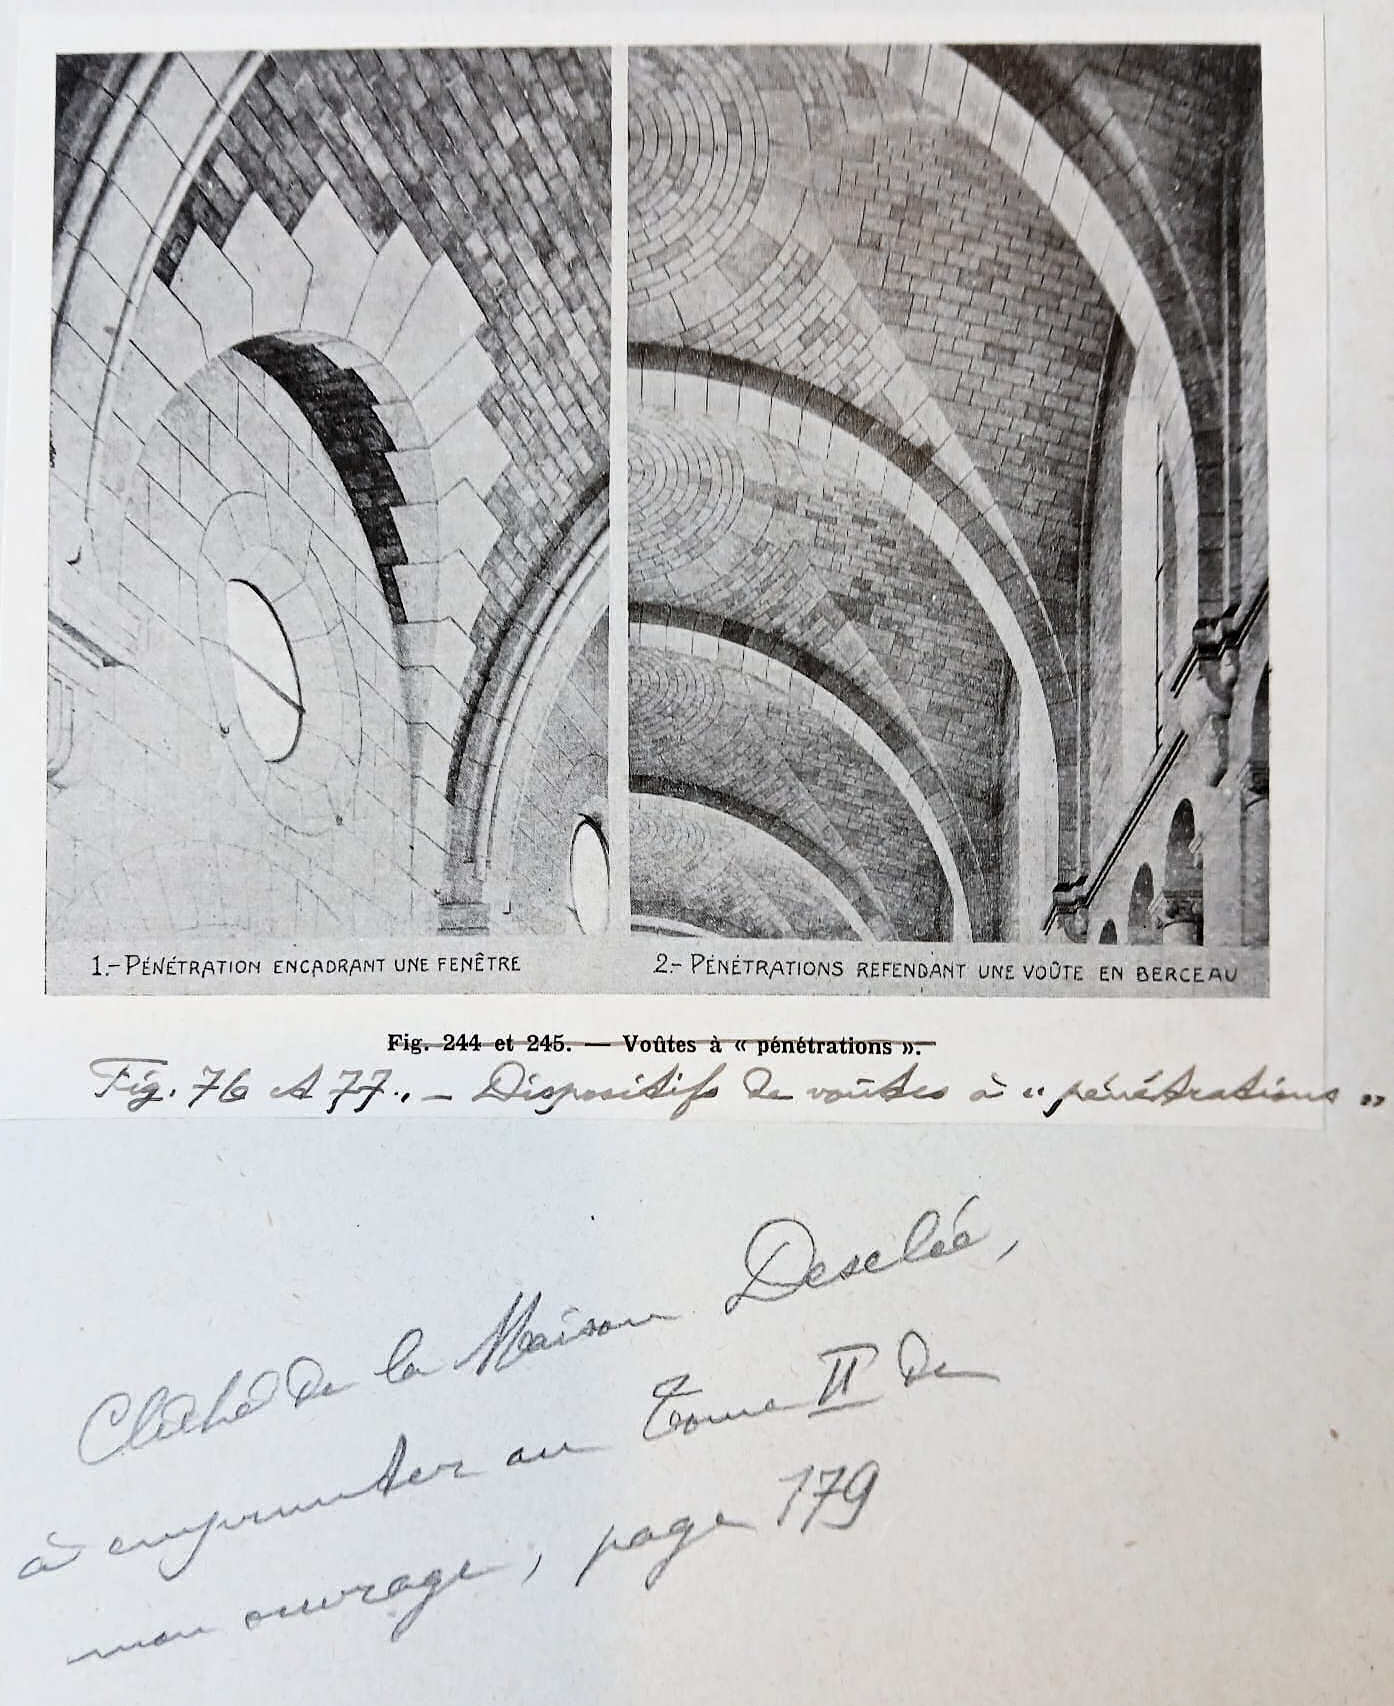 1.- PÉNÉTRATION ENCADRANT UNE FENÊTRE
2- PÉNÉTRATIONS REFENDANT UNE VOÛTE EN BERCEAU
Fig. 244 et 245. — Voûtes à « pénétrations ».
Fig. 76 et 77. — Dispositifs de voûtes à « pénétrations »
Cliché de la Maison Desclée,
à emprunter au Tome II de
mon ouvrage, page 179